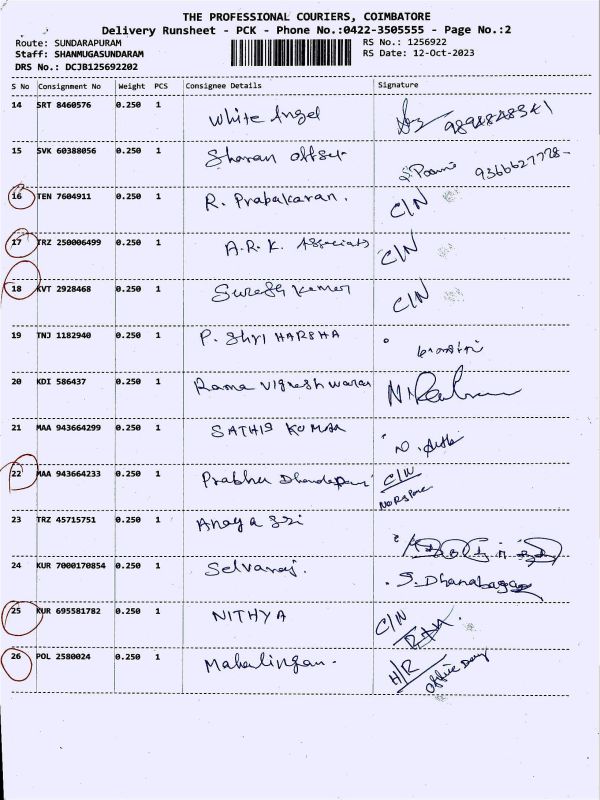 THE PROFESSIONAL COURIERS, COIMBATORE
Delivery Runsheet - PCK - Phone No.:0422-3505555 - Page No.:2
Route: SUNDARAPURAM RS No.: 1256922
Staff: SHANMUGASUNDARAM RS Date: 12-Oct-2023
DRS No.: DCJB125692202
S No Consignment No Weight PCS Consignee Details Signature
14 SRT 8460576 0.250 1 White Angel
15 SVK 60388056 0.250 1 Sharan offset 9366627728-
16 TEN 7604911 0.250 1 R. Prabakaran. C/N
17 TRZ 250006499 0.250 1 A.R.K. Associats C/N
18 KVT 2928468 0.250 1 Suresh Kumar C/N
19 TNJ 1182940 0.250 1 P. Shri HARSHA
20 KDI 586437 0.250 1 Rama Vignesh waran
21 MAA 943664299 0.250 1 SATHIS KUMAR
22 MAA 943664233 0.250 1 Prabhu Dhandapani C/N
23 TRZ 45715751 0.250 1 Anaya Sri
24 KUR 7000170854 0.250 1 Selvaraj. S. Dhanabagya
25 KUR 695581782 0.250 1 NITHYA C/N
26 POL 2580024 0.250 1 Mahalingam. H/R